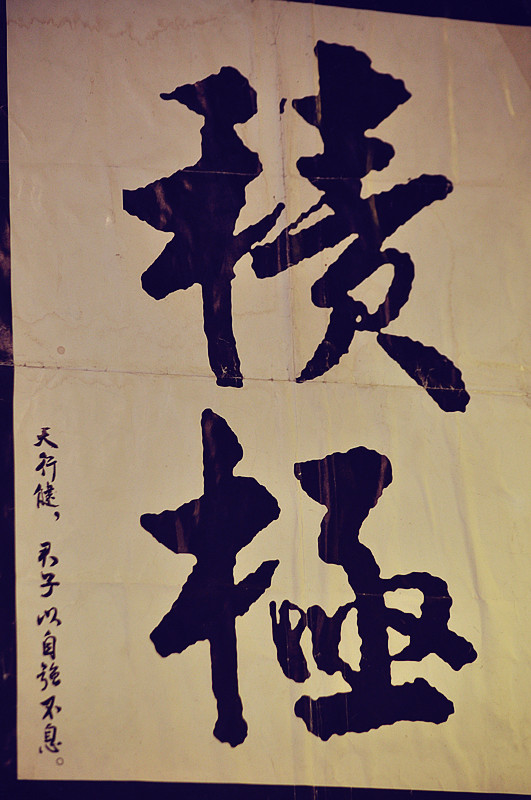 積極
天行健，君子以自強不息。